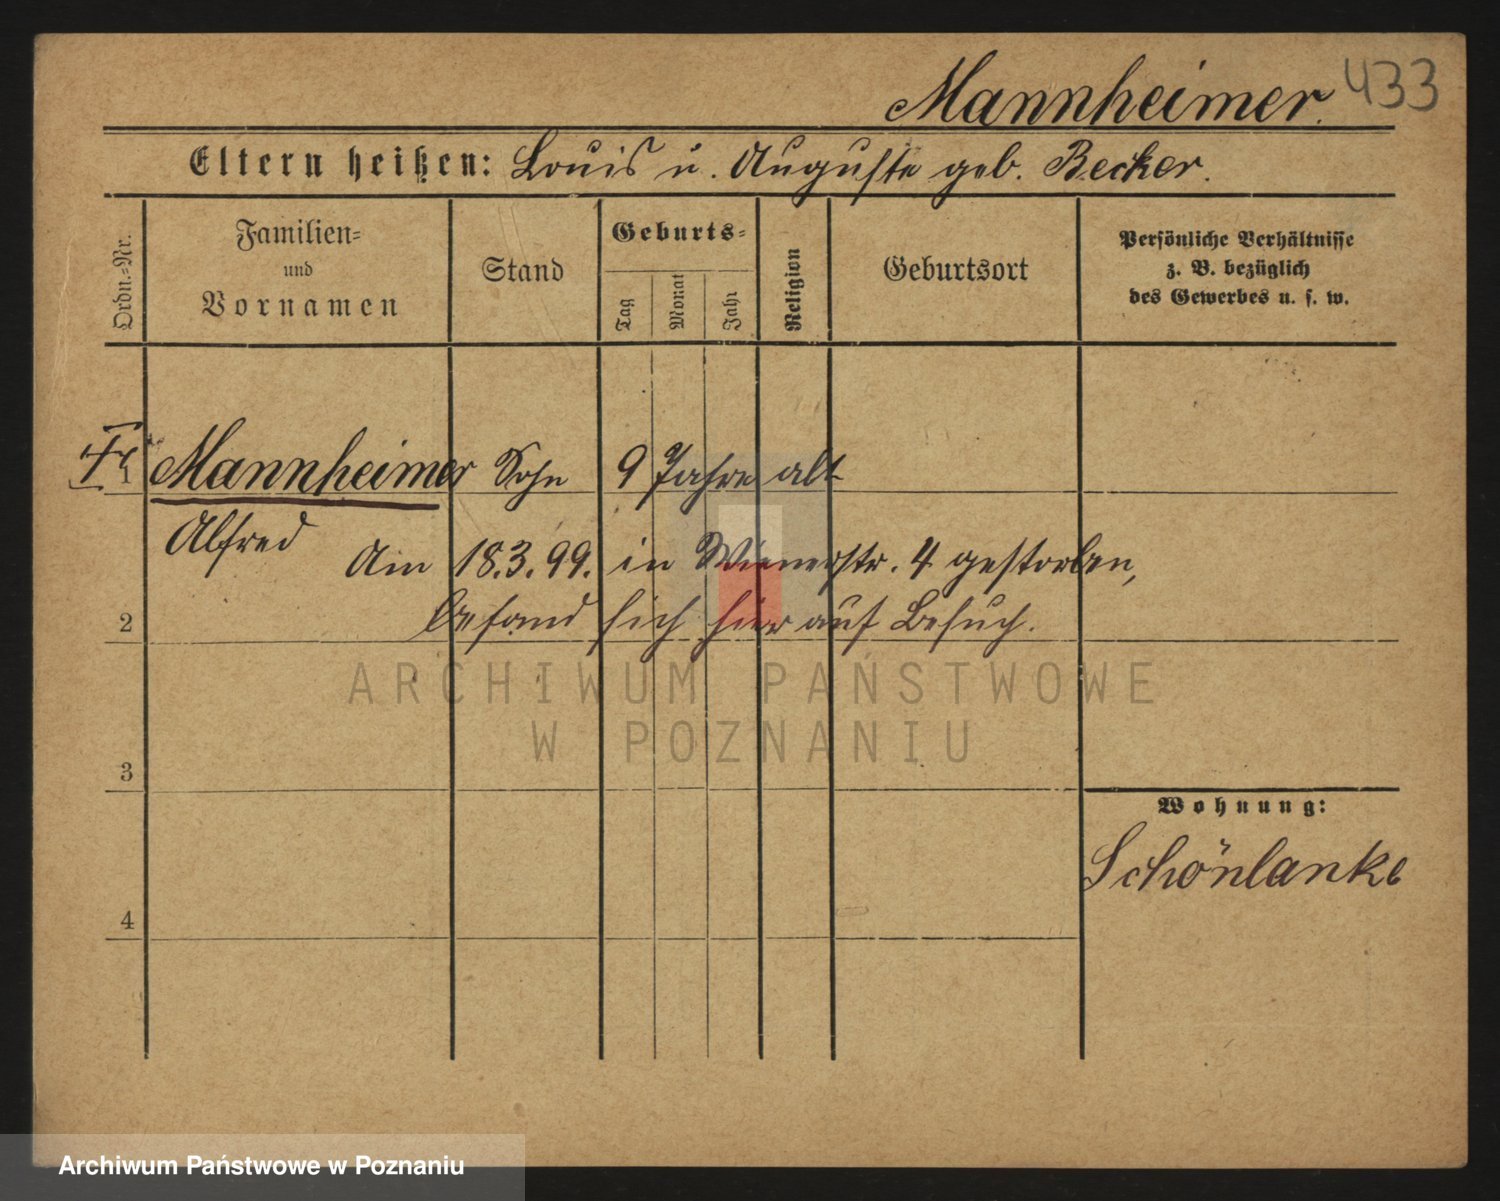 Mannheimer. 433
Eltern heißen: Louis u. Auguste geb. Becker.
Ordn.=Nr.
Familien=
und
Vornamen
Stand
Geburts=
Tag
Monat
Jahr
Religion
Geburtsort
Persönliche Verhältnisse
z. B. bezüglich
des Gewerbes u. s. w.
1 Mannheimer Sohn 9 Jahre alt
Alfred
Am 18.3.99. in Wienerstr. 4 gestorben,
2 befand sich hier auf Besuch.
ARCHIWUM PAŃSTWOWE
W POZNANIU
3
Wohnung:
Schönlanke
4
Archiwum Państwowe w Poznaniu